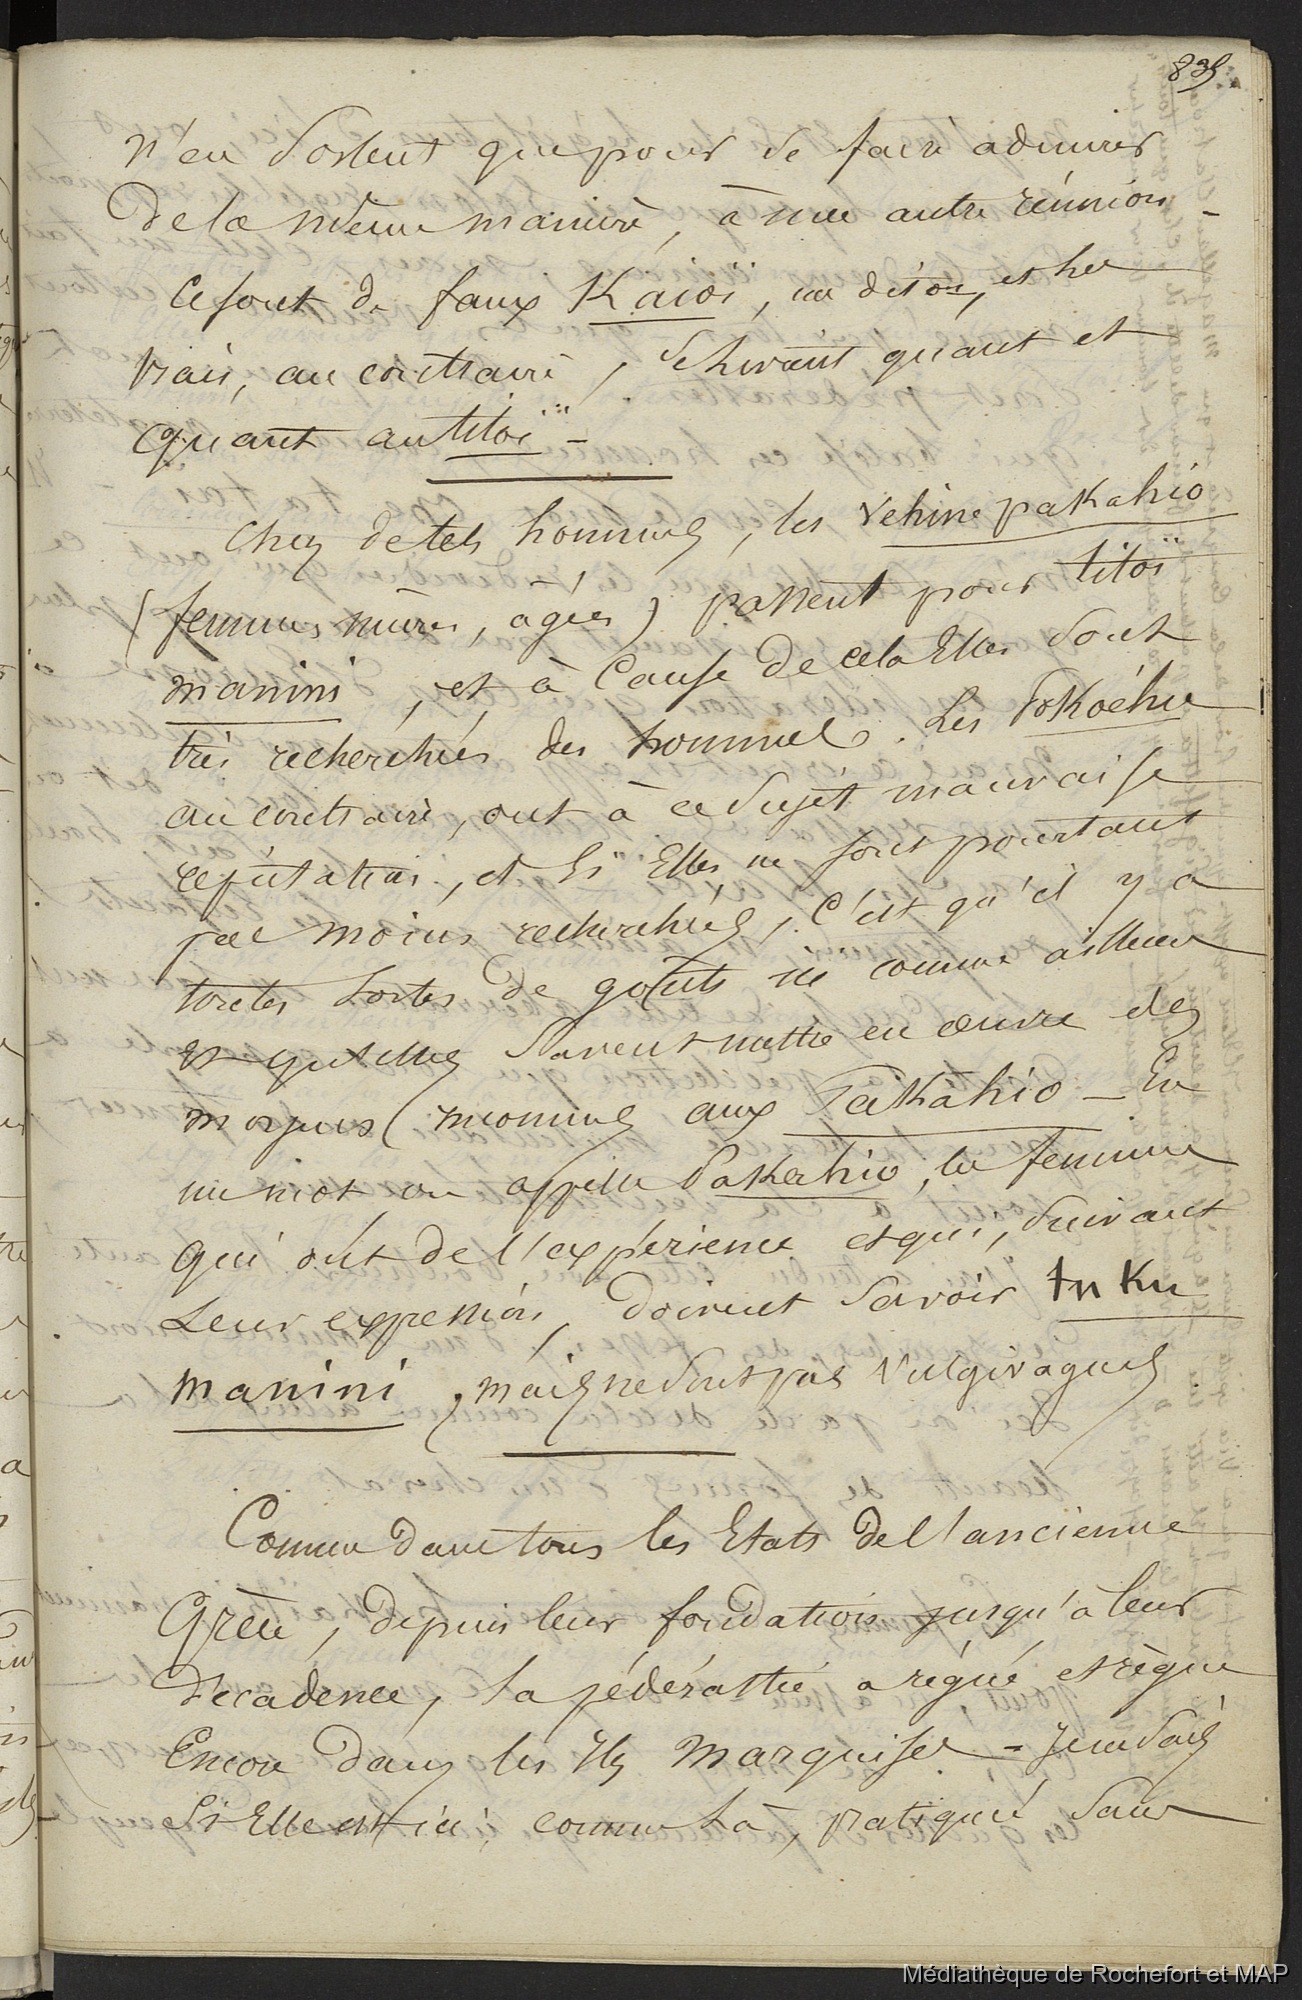 835.
n'en sortent que pour se faire admirer
de la même manière, à une autre réunion -
Ce sont de faux Kaioï, me dit on, et les
vrais, au contraire, se livrant quant et
quant au titoï -
Chez de tels hommes, les vehine pakahio
(femmes mûres, agées) passent pour titoï
manini, et à cause de cela Elles sont
très recherchées des hommes. Les Pokoéhu
au contraire, ont à ce sujet mauvaise
réputation, et si Elles ne sont pourtant
pas moins recherchées, c'est qu'il y a
toutes sortes de goûts ici comme ailleurs
et qu'elles savent mettre en œuvre des
moyens inconnus aux Pakahio - En
un mot on appelle Pakahio, les femmes
qui ont de l'expérience et qui, suivant
Leur expression, doivent savoir
manini, mais ne sont pas vulgivagues
Comme dans tous les Etats de l'ancienne
Grèce, depuis leur fondation jusqu'à leur
décadence, la pédérastie a régné et règne
Encore dans les Iles Marquises - Je ne sais
si Elle est ici, comme là, pratiquée sans
Médiathèque de Rochefort et MAP